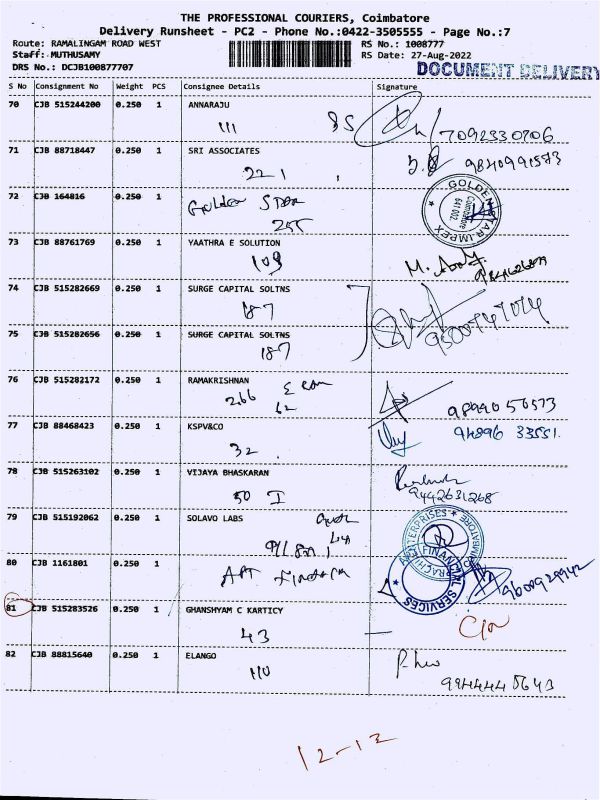 THE PROFESSIONAL COURIERS, Coimbatore
Delivery Runsheet - PC2 - Phone No.:0422-3505555 - Page No.:7
Route: RAMALINGAM ROAD WEST RS No.: 1008777
Staff: MUTHUSAMY RS Date: 27-Aug-2022
DRS No.: DCJB100877707 DOCUMENT DELIVERY
S No Consignment No Weight PCS Consignee Details Signature
70 CJB 515244200 0.250 1 ANNARAJU
111 7092330706
71 CJB 88718447 0.250 1 SRI ASSOCIATES
221 9840991573
72 CJB 164816 0.250 1 Golden Star
255
GOLDEN STAR IMPEX
Coimbatore
641 002.
73 CJB 88761769 0.250 1 YAATHRA E SOLUTION
109
74 CJB 515282669 0.250 1 SURGE CAPITAL SOLTNS
187
75 CJB 515282656 0.250 1 SURGE CAPITAL SOLTNS
187
76 CJB 515282172 0.250 1 RAMAKRISHNAN
266
62
77 CJB 88468423 0.250 1 KSPV&CO 94896 33551
32
78 CJB 515263102 0.250 1 VIJAYA BHASKARAN
50 I 9442631268
79 CJB 515192062 0.250 1 SOLAVO LABS
80 CJB 1161801 0.250 1
FINANCIAL SERVICES
81 CJB 515283526 0.250 1 GHANSHYAM C KARTICY
43
82 CJB 88815640 0.250 1 ELANGO
110
12-12